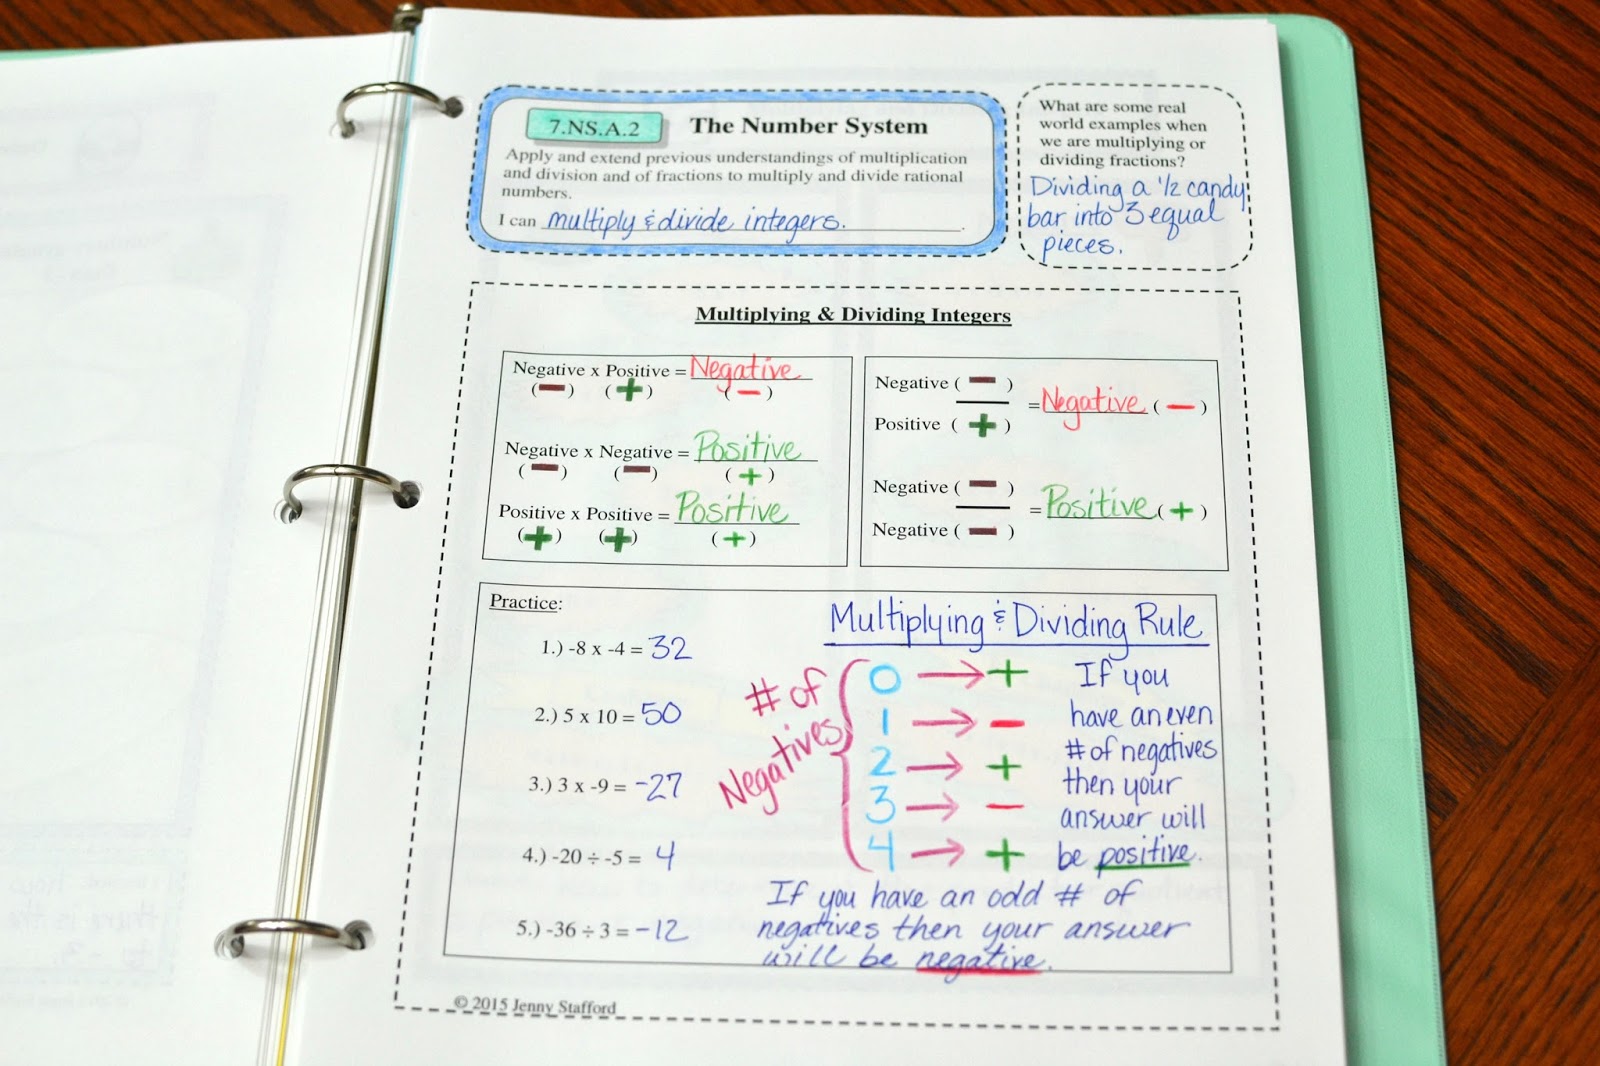 7.NS.A.2 The Number System
Apply and extend previous understandings of multiplication
and division and of fractions to multiply and divide rational
numbers.
I can multiply & divide integers.
What are some real
world examples when
we are multiplying or
dividing fractions?
Dividing a 1/2 candy
bar into 3 equal
pieces.
Multiplying & Dividing Integers
Negative x Positive = Negative
(-) (+) (-)
Negative x Negative = Positive
(-) (-) (+)
Positive x Positive = Positive
(+) (+) (+)
Negative (-)
= Negative (-)
Positive (+)
Negative (-)
= Positive (+)
Negative (-)
Practice:
1.) -8 x -4 = 32
2.) 5 x 10 = 50
3.) 3 x -9 = -27
4.) -20 ÷ -5 = 4
5.) -36 ÷ 3 = -12
Multiplying & Dividing Rule
# of
Negatives
0 → +
1 → -
2 → +
3 → -
4 → +
If you
have an even
# of negatives
then your
answer will
be positive.
If you have an odd # of
negatives then your answer
will be negative.
© 2015 Jenny Stafford